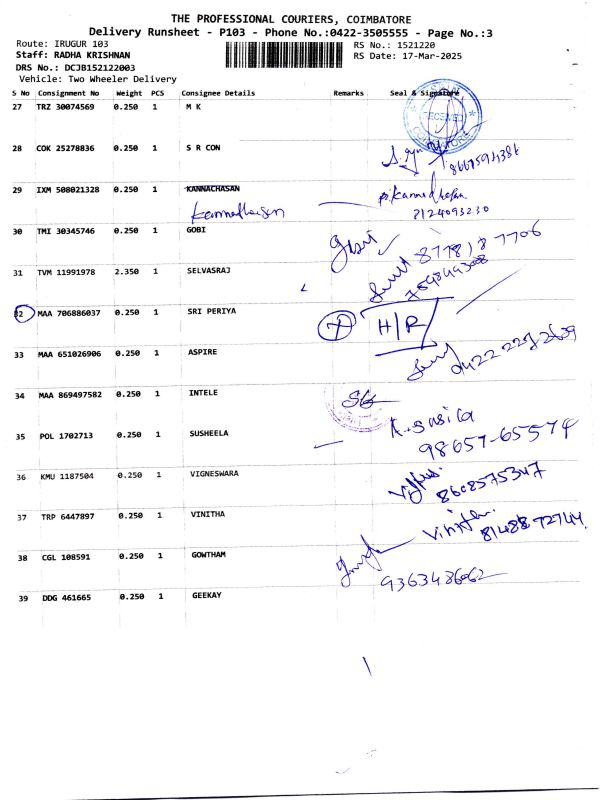 THE PROFESSIONAL COURIERS, COIMBATORE
Delivery Runsheet - P103 - Phone No.:0422-3505555 - Page No.:3
Route: IRUGUR 103 RS No.: 1521220
Staff: RADHA KRISHNAN RS Date: 17-Mar-2025
DRS No.: DCJB152122003
Vehicle: Two Wheeler Delivery
S No Consignment No Weight PCS Consignee Details Remarks Seal & Signature
27 TRZ 30074569 0.250 1 M K
RECEIVED
COIMBATORE
28 COK 25278836 0.250 1 S R CON
8667594386
29 IXM 508021328 0.250 1 KANNACHASAN
Kannadhasan
P. Kannadhasan
8124093230
30 TMI 30345746 0.250 1 GOBI
Gobi 877818 7706
31 TVM 11991978 2.350 1 SELVASRAJ
32 MAA 706886037 0.250 1 SRI PERIYA
H/R
33 MAA 651026906 0.250 1 ASPIRE
0422 2272639
34 MAA 869497582 0.250 1 INTELE
35 POL 1702713 0.250 1 SUSHEELA
K. Sasila
98657-65574
36 KMU 1187504 0.250 1 VIGNESWARA
8608575347
37 TRP 6447897 0.250 1 VINITHA
Vinitha
8148872744
38 CGL 108591 0.250 1 GOWTHAM
9363486062
39 DDG 461665 0.250 1 GEEKAY